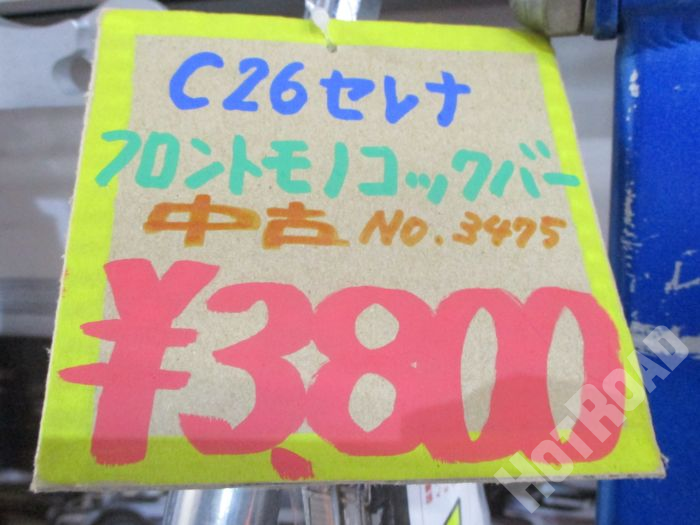 C26セレナ
フロントモノコックバー
中古 NO.3475
¥3,800
HOTROAD